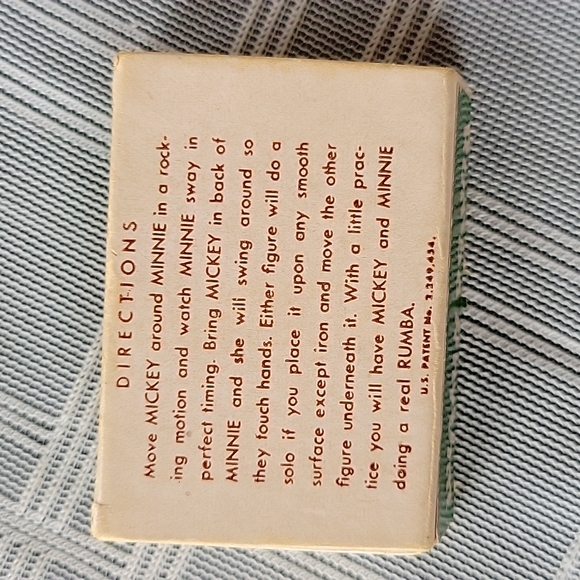 DIRECTIONS
Move MICKEY around MINNIE in a rock-
ing motion and watch MINNIE sway in
perfect timing. Bring MICKEY in back of
MINNIE and she will swing around so
they touch hands. Either figure will do a
solo if you place it upon any smooth
surface except iron and move the other
figure underneath it. With a little prac-
tice you will have MICKEY and MINNIE
doing a real RUMBA.
U.S. PATENT No. 2,249,454.